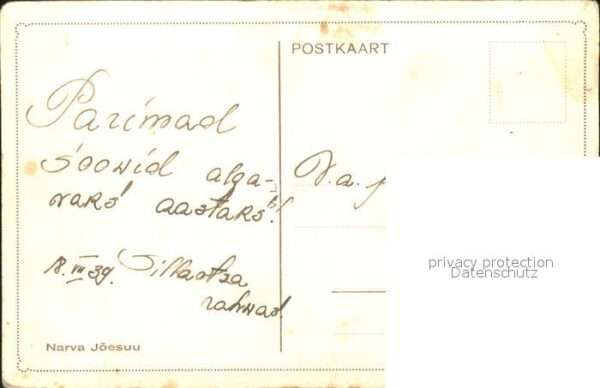 POSTKAART
Parimad
soowid alga-
vaks aastaks!
18. VII 39. Sillaotsa
rahwas.
V. a.
Narva Jõesuu
privacy protection
Datenschutz